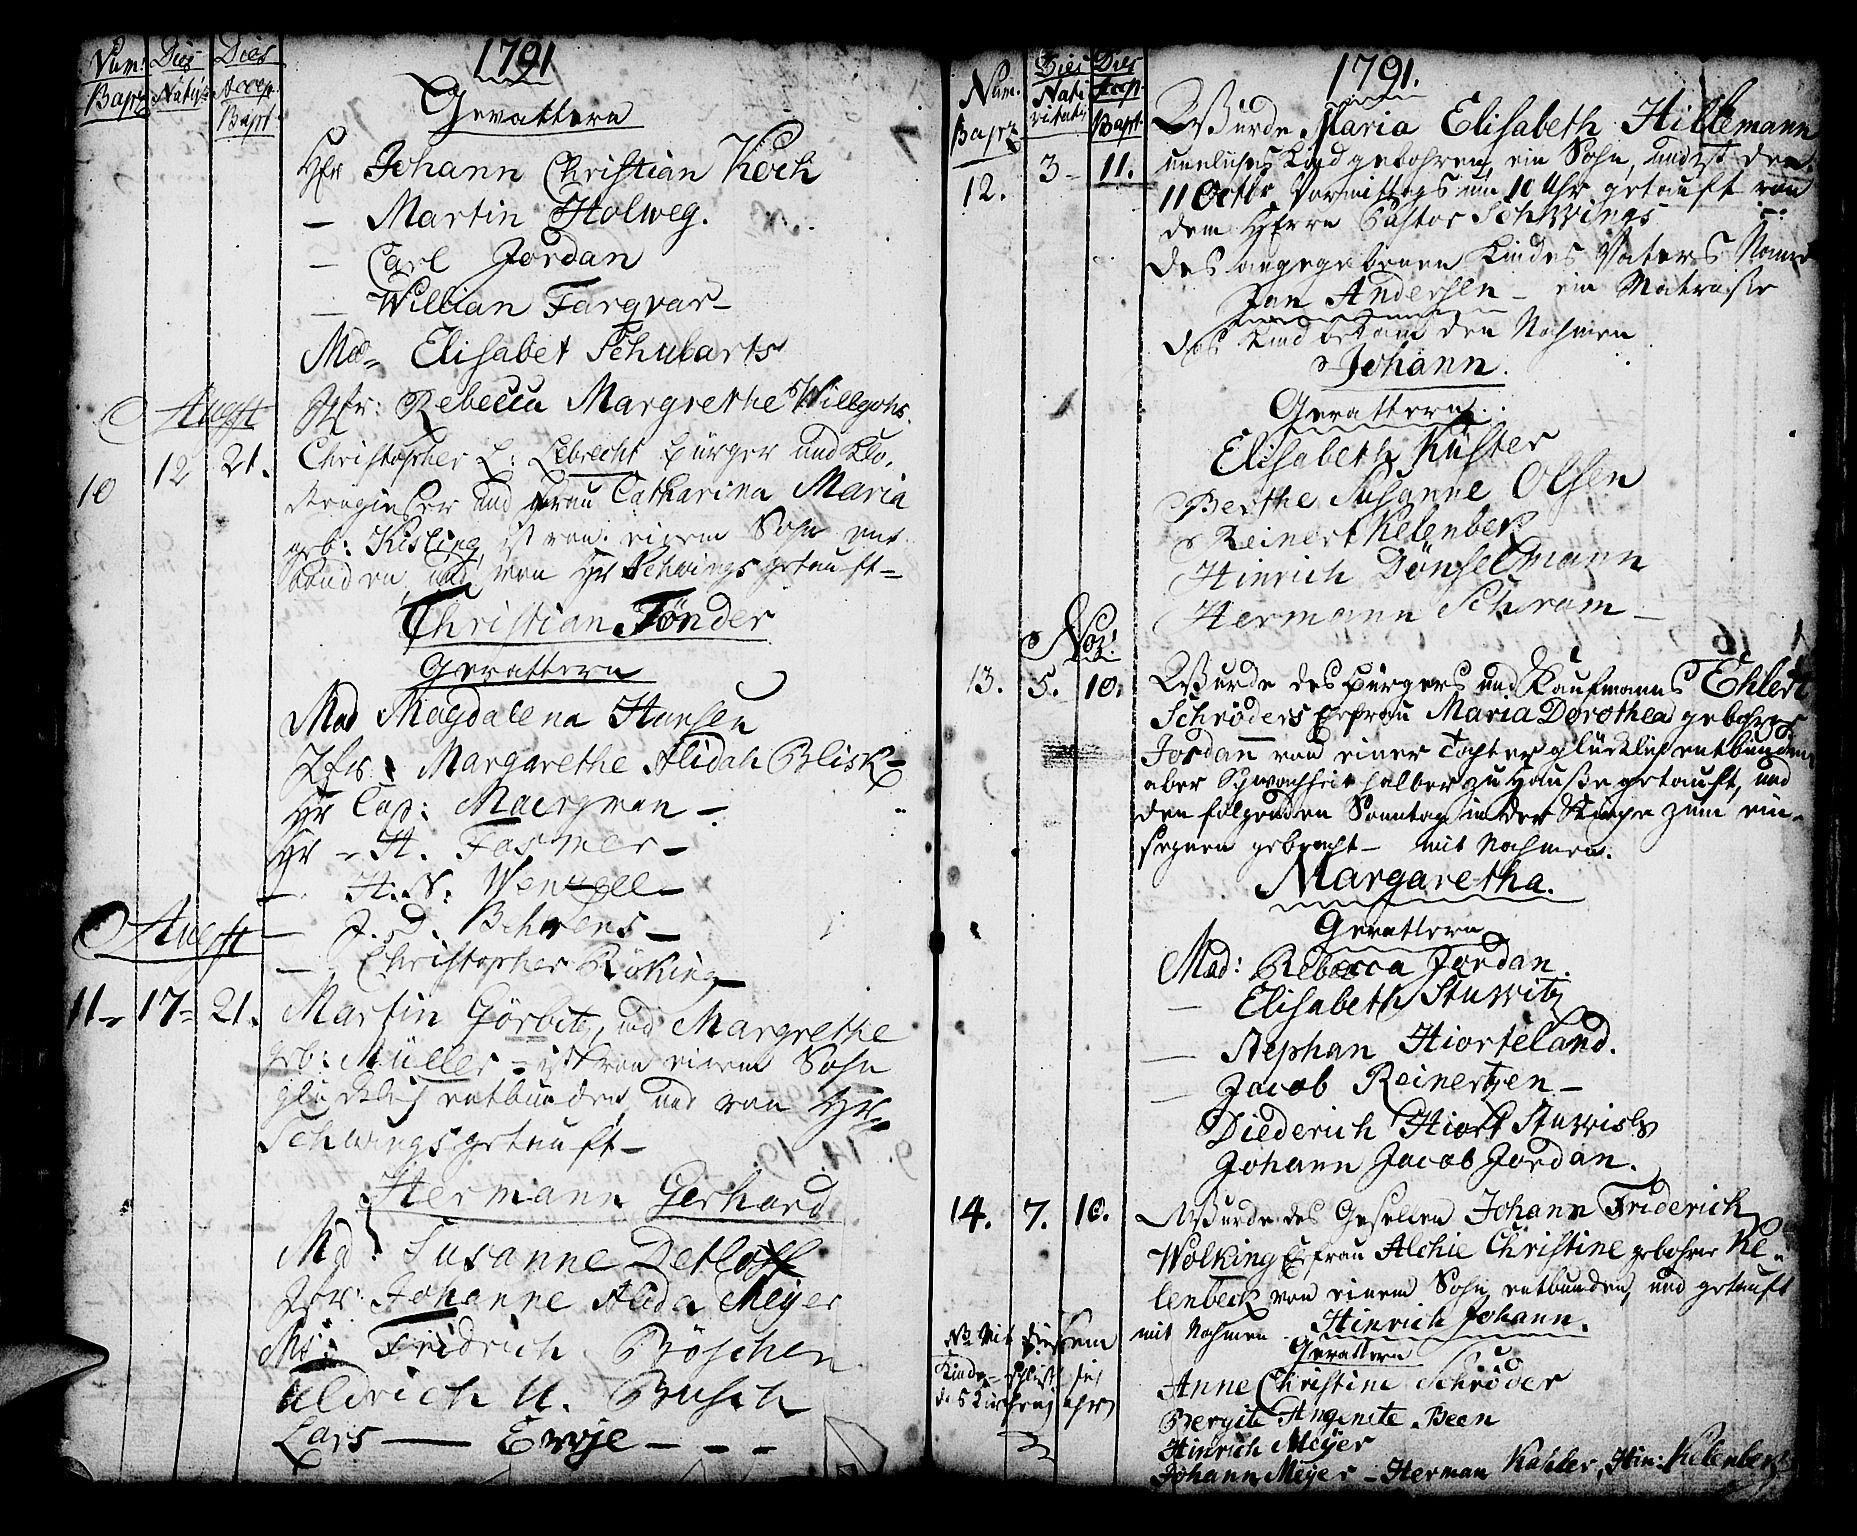 Num: Dies Dies
Bapt Nativ: Accep.
Bapt
1791
Gevattern
Hr Johann Christian Koch
— Martin Holweg.
— Carl Jordan
— Willian Farqvar—
Mad= Elisabet Schubarts
Jfr: Rebecca Margrethe Willgohs.
Augst
10 12 21.
Christopher L: Lebrecht bürger und
und frau Catharina Maria
geb: Kisling, ist von einem Sohn ent
bunden, und von Hr Schwings getauft=
Christian Tönder
Gevattern
Mad Magdalena Hansen
Jfr. Margarethe Alidah Blisk
Hr Cap: —
Hr = H. Fasmer—
— H. N: Wenzell—
— J. D. Behrens—
— Christopher Rüking
Augst
11= 17= 21.
Martin Görbitz, und Margrethe
geb: Müller = ist von einem Sohn
glücklich entbunden, und von Hr
Schwings getauft—
Hermann Gerhard
Md: Susanne Detloff
Jfr: Johanne Alida Meÿer
Ms: Fridrich Böschen
Aldrich U. Busch
Lars —— Evvje — - -
Num. Dies Dies
Bapt Nati Accp.
vitatis Bapt.
1791.
12. 3— 11.
Wurde Maria Elisabeth Hiltemann
uneliches Kind gebohren, ein Sohn, und ist den
11 Octbr Vormittags um 10 Uhr getauft von
dem Herrn Pastor Schwings
des angegebenen Kindes Vaters Name
Jan Andersen— ein Matrose
das Kind bekam den Nahmen
Johann.
Gevattern.
Elisabeth Küster
Berthe Susanne Olsen
Reinert Kelenbek
Hinrich Dönselmann
Hermann Schram—
Nov:
13. 5. 10.
Wurde des bürgers und Kaufmanns Ehlert
Schröders Ehfrau Maria Dorothea gebohrne
Jordan von einer Tochter glücklich entbunden
aber Schwachheit halber zu Hauße getauft, und
den folgenden Sonntag in der Kirche zum ein-
segnen gebracht— mit Nahmen.
Margaretha.
Gevattern
Mad: Rebecca Jordan.
— Elisabeth Stuwitz
— Stephan Hiorteland.
— Jacob Reinertzen—
Diederich Hiort Stuwisky
Johann Jacob Jordan.
14. 7. 10.
Wurde des Gesellen Johann Friderich
Wolking Ehfrau Alchie Christine gebohrne Ke-
lenbeck von einem Sohn entbunden, und getauft
mit Nahmen Hinrich Johann.
NB Mit diesem
Kinde schließt sich
das Kirchenjahr
Gevattern
Anne Christine Schröder
Bergite Angenete Been
Hinrich Meÿer
Johann Meÿer— Herman Kahler, Hin: Kelenberg